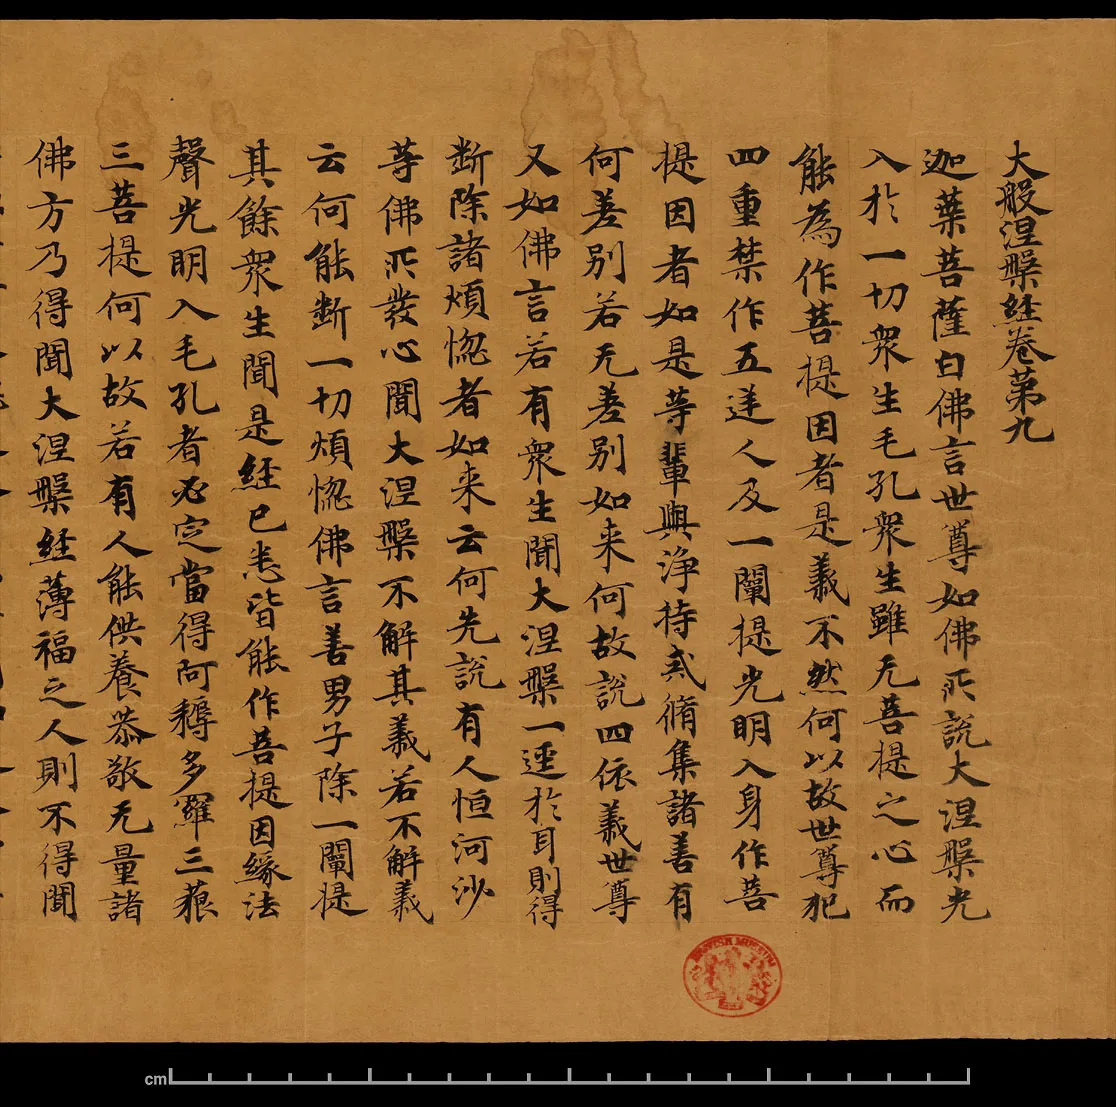 大般涅槃経卷第九
迦葉菩薩白佛言世尊如佛所說大涅槃光
入於一切衆生毛孔衆生雖无菩提之心而
能為作菩提因者是義不然何以故世尊犯
四重禁作五逆人及一闡提光明入身作菩
提因者如是等輩與淨持戒脩集諸善有
何差別若无差別如来何故說四依義世尊
又如佛言若有衆生聞大涅槃一逕於耳則得
斷除諸煩惚者如来云何先說有人恒河沙
等佛所發心聞大涅槃不解其義若不解義
云何能斷一切煩惚佛言善男子除一闡提
其餘衆生聞是経已悉皆能作菩提因緣法
聲光明入毛孔者必定當得阿耨多羅三藐
三菩提何以故若有人能供養恭敬无量諸
佛方乃得聞大涅槃経薄福之人則不得聞
BRITISH MUSEUM
cm